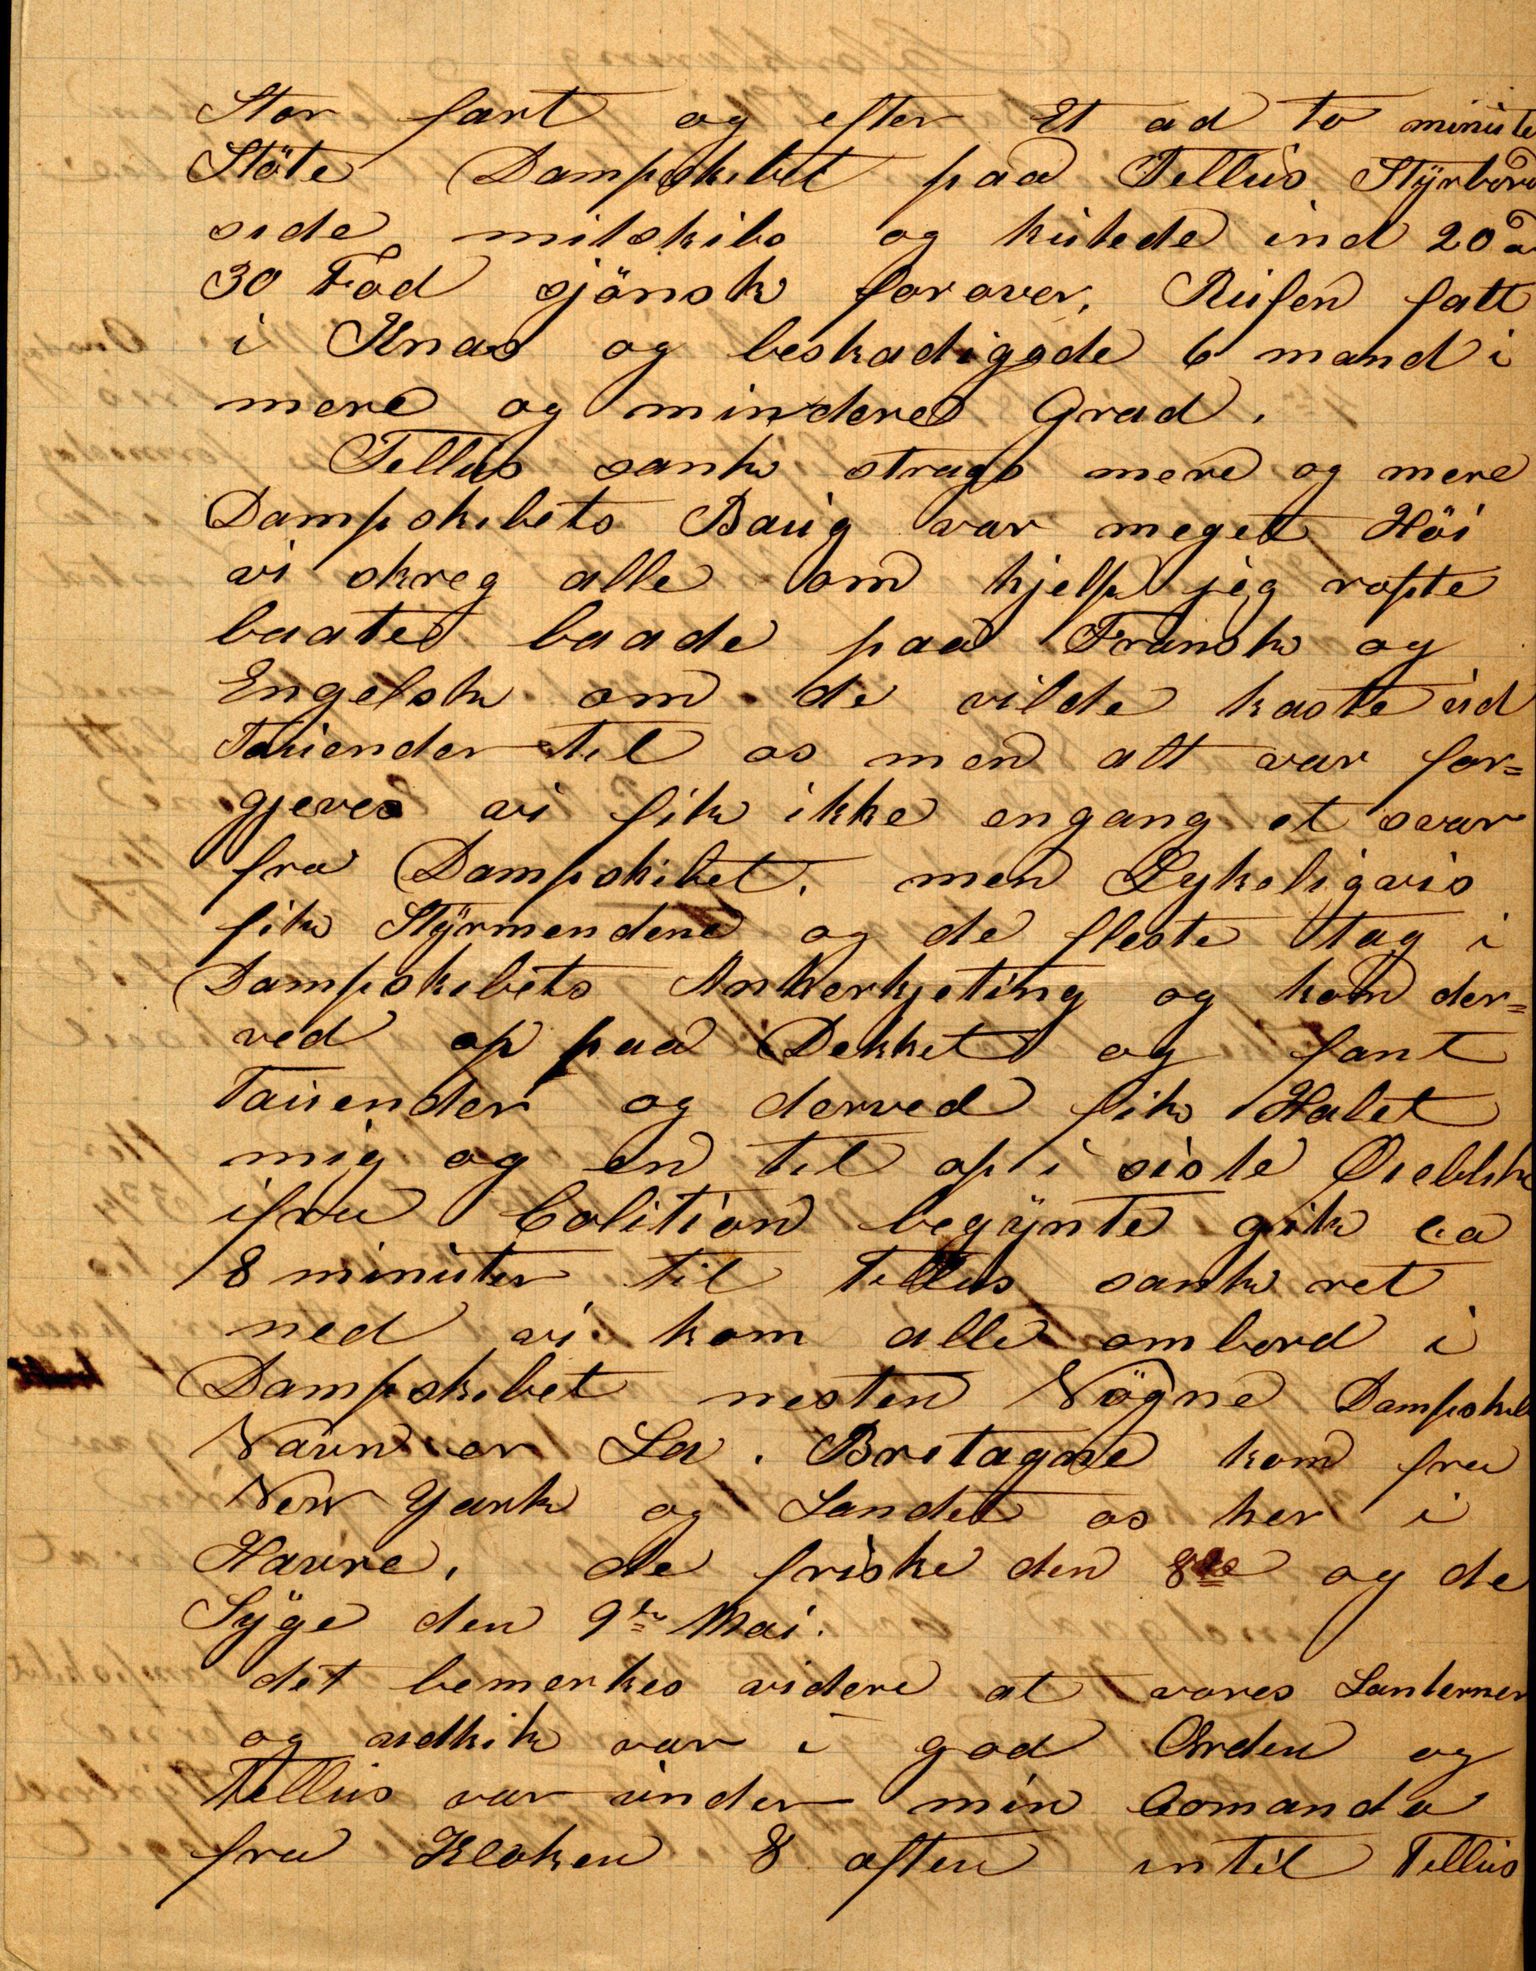 Stor fart og efter Et ad to minuter
Stöte Dampskibet paa Tellus Styrbord
side mitskibs og kutede ind 20 a
30 Fod sjönsk forover, Rufen fatt
i Knas og beskadigede 6 mand i
mere og mindere Grad.
Tellus sank strags mere og mere
Dampskibets Baug var meget Höi
vi skreg alle om hjelp jeg ropte
baate baade paa Fransk og
Engelsk om de vilde kaste ud
Tauender til os men alt var for=
gjeves vi fik ikke engang et svar
fra Dampskibet. men Lykeligvis
fik Styrmendene og de fleste tag i
Dampskibets Ankerkjeting og kom der=
ved op paa Dekket og fant
Tauender og derved fik Halet
mig og en til op i siste Øieblik
ifra Colition begynte gik ca
8 minuter til Tellus sank ret
ned vi kom alle ombord i
Dampskibet nesten Nögne Dampskib
Navn er La. Bretagne kom fra
New York og Landet os her i
Havre, de friske den 8de og de
Syge den 9de Mai.
det bemerkes videre at vores Lanterner
og udkik var i god Orden og
Tellus var under min Comando
fra Kloken 8 aften intil Tellus